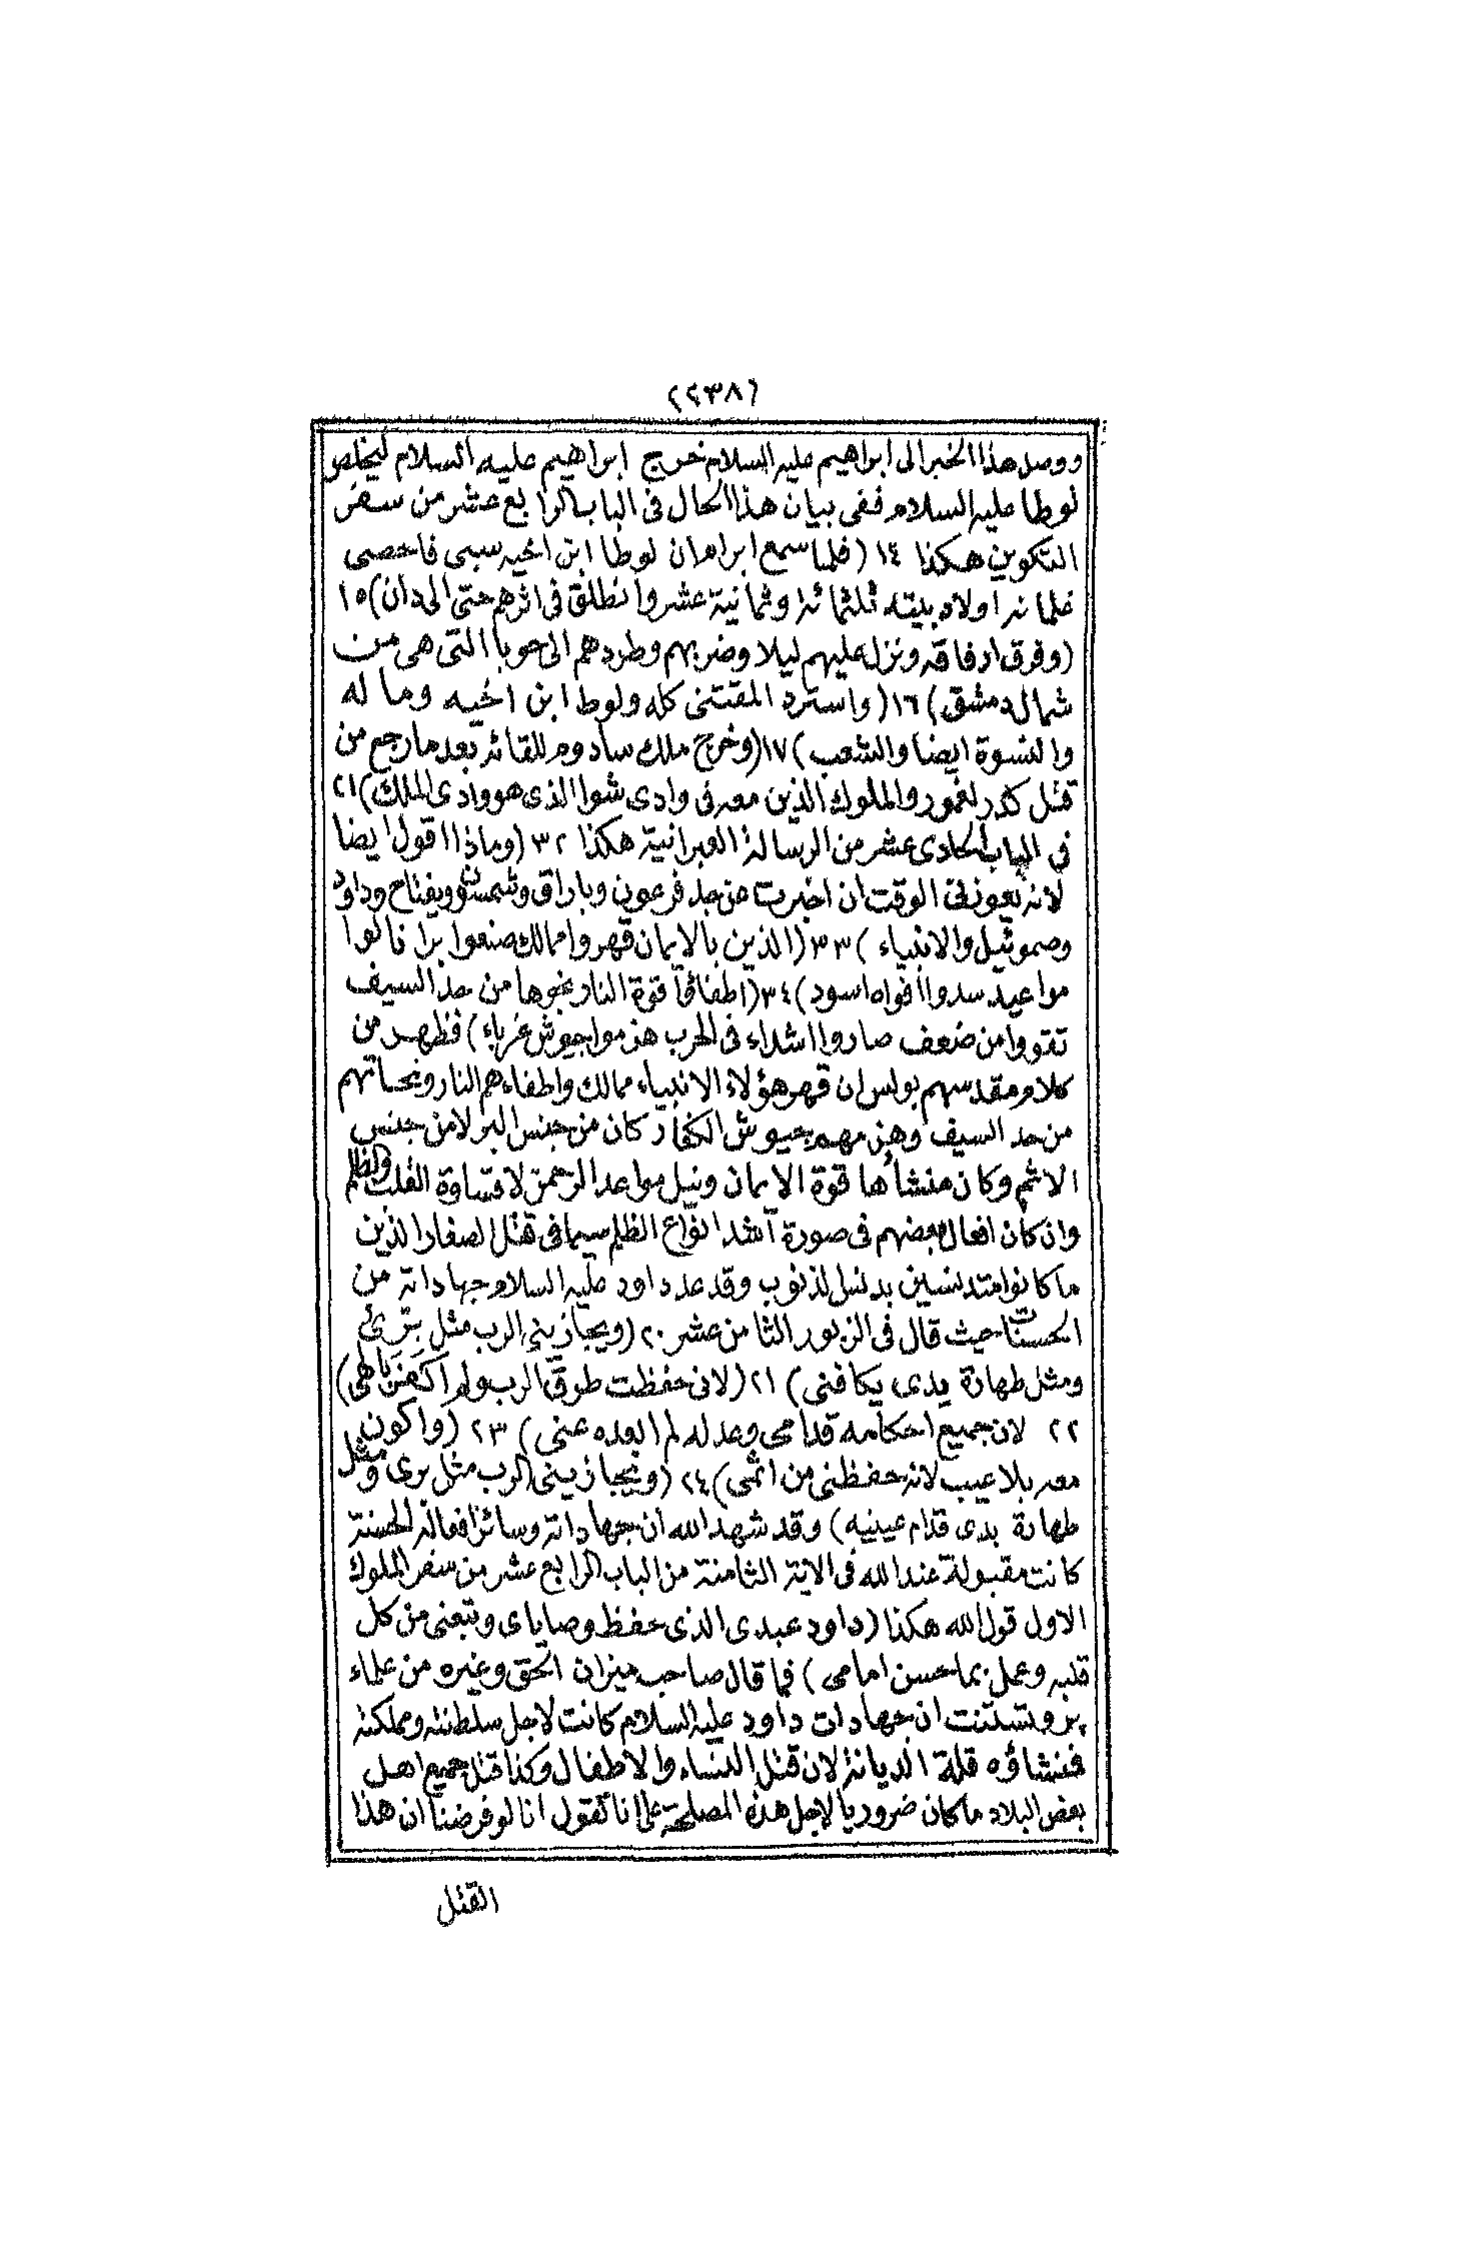 (٢٣٨)
ووصل هذا الخبر الى ابراهيم عليه السلام خرج ابراهيم عليه السلام ليخلص
لوطا عليه السلام ففى بيان هذا الحال فى الباب الرابع عشر من سفر
التكوين هكذا ١٤ (فلما سمع ابرام ان لوطا ابن اخيه سبى فاحصى
غلمانه اولاد بيته ثلثمائة وثمانية عشر وانطلق فى اثرهم حتى الى دان) ١٥
(وفرق ارفاقه ونزل عليهم ليلا وضربهم وطردهم الى حوبا التى هى من
شمال دمشق) ١٦ (واسترد المقتنى كله ولوط ابن اخيه وما له
والنسوة ايضا والشعب) ١٧ (وخرج ملك سادوم للقائه بعد ما رجع من
قتل كدرلغمور والملوك الذين معه فى وادى شوا الذى هو وادى الملك) ٢١
فى الباب الحادى عشر من الرسالة العبرانية هكذا ٣٢ (وماذا اقول ايضا
لانه يعوزنى الوقت ان اخبرت عن جدعون وباراق وشمسون ويفتاح وداود
وصموئيل والانبياء) ٣٣ (الذين بالايمان قهروا ممالك صنعوا برا نالوا
مواعيد سدوا افواه اسود) ٣٤ (اطفاؤا قوة النار نجوا من حد السيف
تقووا من ضعف صاروا اشداء فى الحرب هزموا جيوش غرباء) فظهر من
كلام مقدسهم بولس ان قهر هؤلاء الانبياء ممالك واطفاءهم النار ونجاتهم
من حد السيف وهزمهم جيوش الكفار كان من جنس البر لا من جنس
الاثم وكان منشأها قوة الايمان ونيل مواعد الرحمن لا قساوة القلب والظلم
وان كان افعال بعضهم فى صورة اشد انواع الظلم سيما فى قتل الصغار الذين
ما كانوا متدنسين بدنس الذنوب وقد عد داود عليه السلام جهاداته من
الحسنات حيث قال فى الزبور الثامن عشر ٢٠ (ويجازينى الرب مثل برى
ومثل طهارة يدى يكافنى) ٢١ (لانى حفظت طرق الرب ولم اكفر بالهى)
٢٢ لان جميع احكامه قدامى وعدله لم ابعده عنى) ٢٣ (واكون
معه بلا عيب لانه حفظنى من اثمى) ٢٤ (ويجازينى الرب مثل برى ومثل
طهارة يدى قدام عينيه) وقد شهد الله ان جهاداته وسائر افعاله الحسنة
كانت مقبولة عند الله فى الاية الثامنة من الباب الرابع عشر من سفر الملوك
الاول قول الله هكذا (داود عبدى الذى حفظ وصاياى وتبعنى من كل
قلبه وعمل بما حسن امامى) فما قال صاحب ميزان الحق وغيره من علماء
پروتستنت ان جهادات داود عليه السلام كانت لاجل سلطنته ومملكته
فمنشاؤه قلة الديانة لان قتل النساء والاطفال وكذا قتل جميع اهل
بعض البلاد ما كان ضروريا لاجل هذه المصلحة على انا نقول انا لو فرضنا ان هذا
القتل